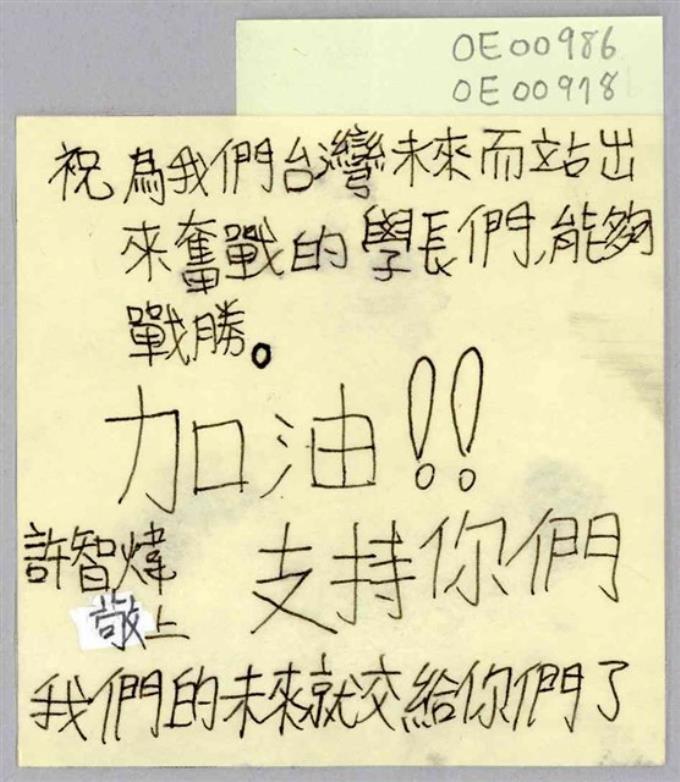 OE00986
OE00918
祝為我們台灣未來而站出
來奮戰的學長們,能夠
戰勝。
加油!!
許智煒
敬上
支持你們
我們的未來就交給你們了